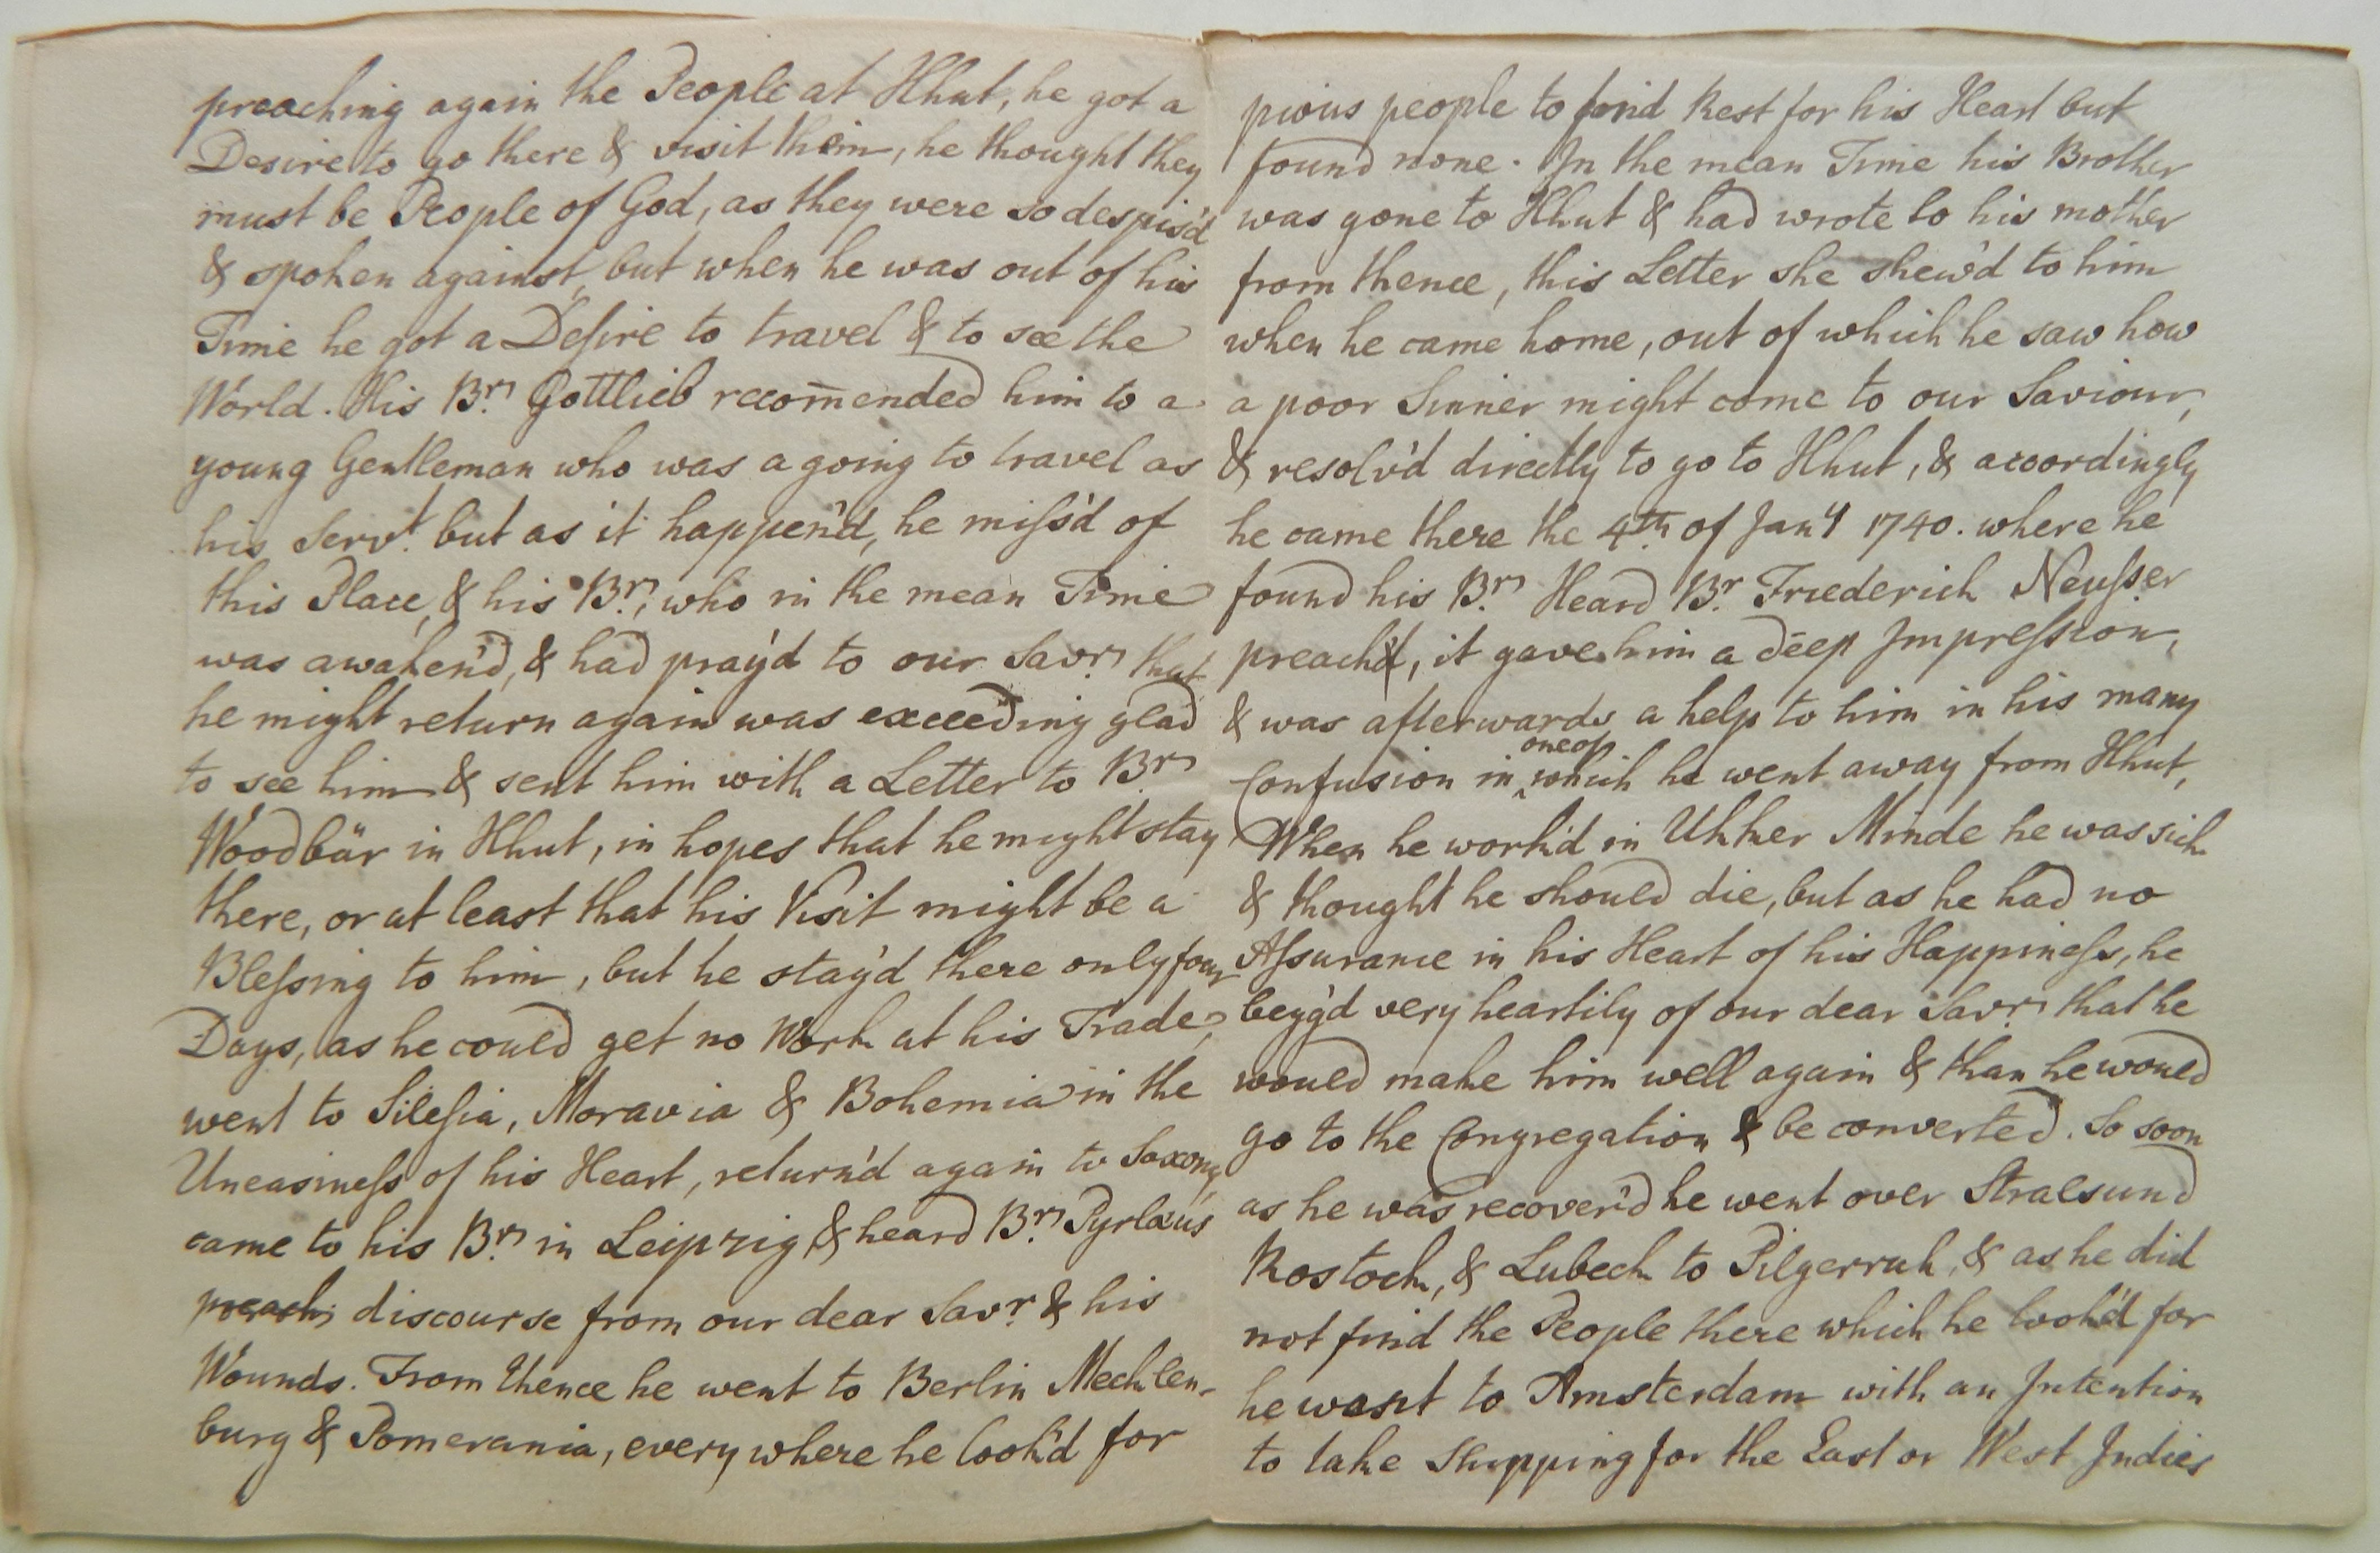 preaching again the People at Hhut, he got a
Desire to go there & visit them, he thought they
must be People of God, as they were so despis'd
& spoken against, but when he was out of his
Time he got a Desire to travel & to see the
World. His Br. Gottlieb recom̄ended him to a
young Gentleman who was a going to travel as
his Servt. but as it happen'd, he miss'd of
this Place, & his Br., who in the mean Time
was awaken'd, & had pray'd to our Savr. that
he might return again was exceeding glad
to see him & sent him with a Letter to Br.
Woodbär in Hhut, in hopes that he might stay
there, or at least that his Visit might be a
Blessing to him, but he stay'd there only four
Days, as he could get no Work at his Trade,
went to Silesia, Moravia & Bohemia in the
Uneasiness of his Heart, return'd again to Saxony
came to his Br. in Leipzig & heard Br. Pyrlæus
preach discourse from our dear Savr. & his
Wounds. From thence he went to Berlin Mechlen-
burg & Pomerania, every where he look'd for
pious people to find Rest for his Heart but
found none. In the mean Time his Brother
was gone to Hhut & had wrote to his mother
from thence, this Letter she shew'd to him
when he came home, out of which he saw how
a poor Sinner might come to our Saviour,
& resolv'd directly to go to Hhut, & accordingly
he came there the 4th. of Jany 1740. where he
found his Br. Heard Br. Friederich Neusser
preach'd, it gave him a deep Impression,
& was afterwards a help to him in his many
Confusion in one of which he went away from Hhut,
When he work'd in Ukker Minde he was sick
& thought he should die, but as he had no
Assurance in his Heart of his Happiness, he
begg'd very heartily of our dear Savr. that he
would make him well again & than he would
go to the Congregation & be converted. So soon
as he was recover'd he went over Stralsund
Rostock, & Lubeck to Pilgerruh, & as he did
not find the People there which he look'd for
he went to Amsterdam with an Intention
to take Shipping for the East or West Indies